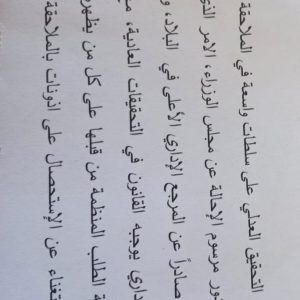 التحقيق العدلي على سلطات واسعة في الملاحقة
ور مرسوم الإحالة عن مجلس الوزراء، الامر الذي
صادراً عن المرجع الإداري الأعلى في البلاد، و
داري يوجبه القانون في التحقيقات العادية،
ة الطلب المنظمة من قبلها على كل من يظهره
تغناء عن الإستحصال على اذونات بالملاحقة